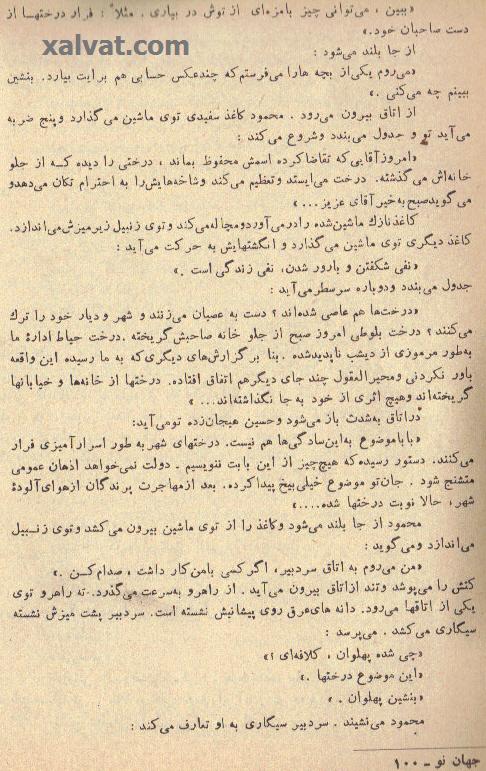 «ببین ، می‌توانی چیز بامزه‌ای از توش در بیاری . مثلاً : فرار درختهـا از
دست صاحبان خود.»
xalvat.com
از جا بلند می‌شود :
«می‌روم یکی‌از بچه هارا می‌فرستم‌که چندعکس حسابی هم برایت بیارد. بنشین
ببینم چه می‌کنی .»
از اتاق بیرون می‌رود . محمود کاغذ سفیدی توی ماشین می گذارد وپنج ضربه
می‌آید تو و جدول می‌بندد وشروع می‌کند :
«امروزآقایی‌که تقاضاکرده اسمش محفوظ بماند ، درختی را دیده کـه از جلو
خانه‌اش می گذشته. درخت می‌ایستد وتعظیم می‌کند وشاخه‌هایش‌را به احترام تکان می‌دهدو
می گویدصبح به‌خیر آقای عزیز... »
کاغذنازك ماشین‌شده رادرمی‌آوردومچاله‌می‌کند وتوی زنبیل زیرمیزش‌می‌اندازد.
کاغذ دیگری توی ماشین می‌گذارد و انگشتهایش به حرکت می‌آید :
«نفی شکفتن و بارور شدن، نفی زندگی است .»
جدول می‌بندد ودوباره سرسطرمی‌آید :
«درخت‌ها هم عاصی شده‌اند ؟ دست به عصیان می‌زنند و شهر و دیار خود را ترك
می‌کنند ؟ درخت بلوطی امروز صبح از جلو خانه صاحبش گریخته .درخت حیاط ادارهٔ ما
به‌طور مرموزی از دیشب ناپدیدشده . بنا بر گزارش‌های دیگری‌که به ما رسیده این واقعه
باور نکردنی ومحیرالعقول چند جای دیگرهم اتفاق افتاده. درختها از خانه‌ها و خیابانها
گریخته‌اند وهیچ اثری از خود به جا نگذاشته‌اند... »
دراتاق به‌شدت باز می‌شود وحسین هیجان‌زده تومی‌آید:
«باباموضوع به‌این‌سادگی‌ها هم نیست. درختهای شهر به طور اسرارآمیزی فرار
می‌کنند. دستور رسیده‌که هیچ‌چیز از این بابت ننویسیم . دولت نمی‌خواهد اذهان عمومی
متشنج شود . جان‌تو موضوع خیلی‌بیخ پیداکرده. بعد ازمهاجرت پرندگان ازهوای‌آلودهٔ
شهر، حالا نوبت درختها شده....»
محمود از جا بلند می‌شود وکاغذ را از توی ماشین بیرون می‌کشد وتوی زنبیل
می‌اندازد و می‌گوید :
«من می‌روم به اتاق سردبیر، اگر کسی بامن کار داشت ، صدام‌کـن .»
کتش را می‌پوشد وتند ازاتاق بیرون می‌آید . از راهرو به‌سرعت می‌گذرد. ته راهرو توی
یکی از اتاقها می‌رود. دانه های‌عرق روی پیشانیش نشسته است. سردبیر پشت میزش نشسته
سیگاری می‌کشد . می‌پرسد :
«چی شده پهلوان ، کلافه‌ای ؟»
«این موضوع درختها .»
«بنشین پهلوان . »
محمود می‌نشیند . سردبیر سیگاری به او تعارف می‌کند :
جهان نو ــ ۱۰۰